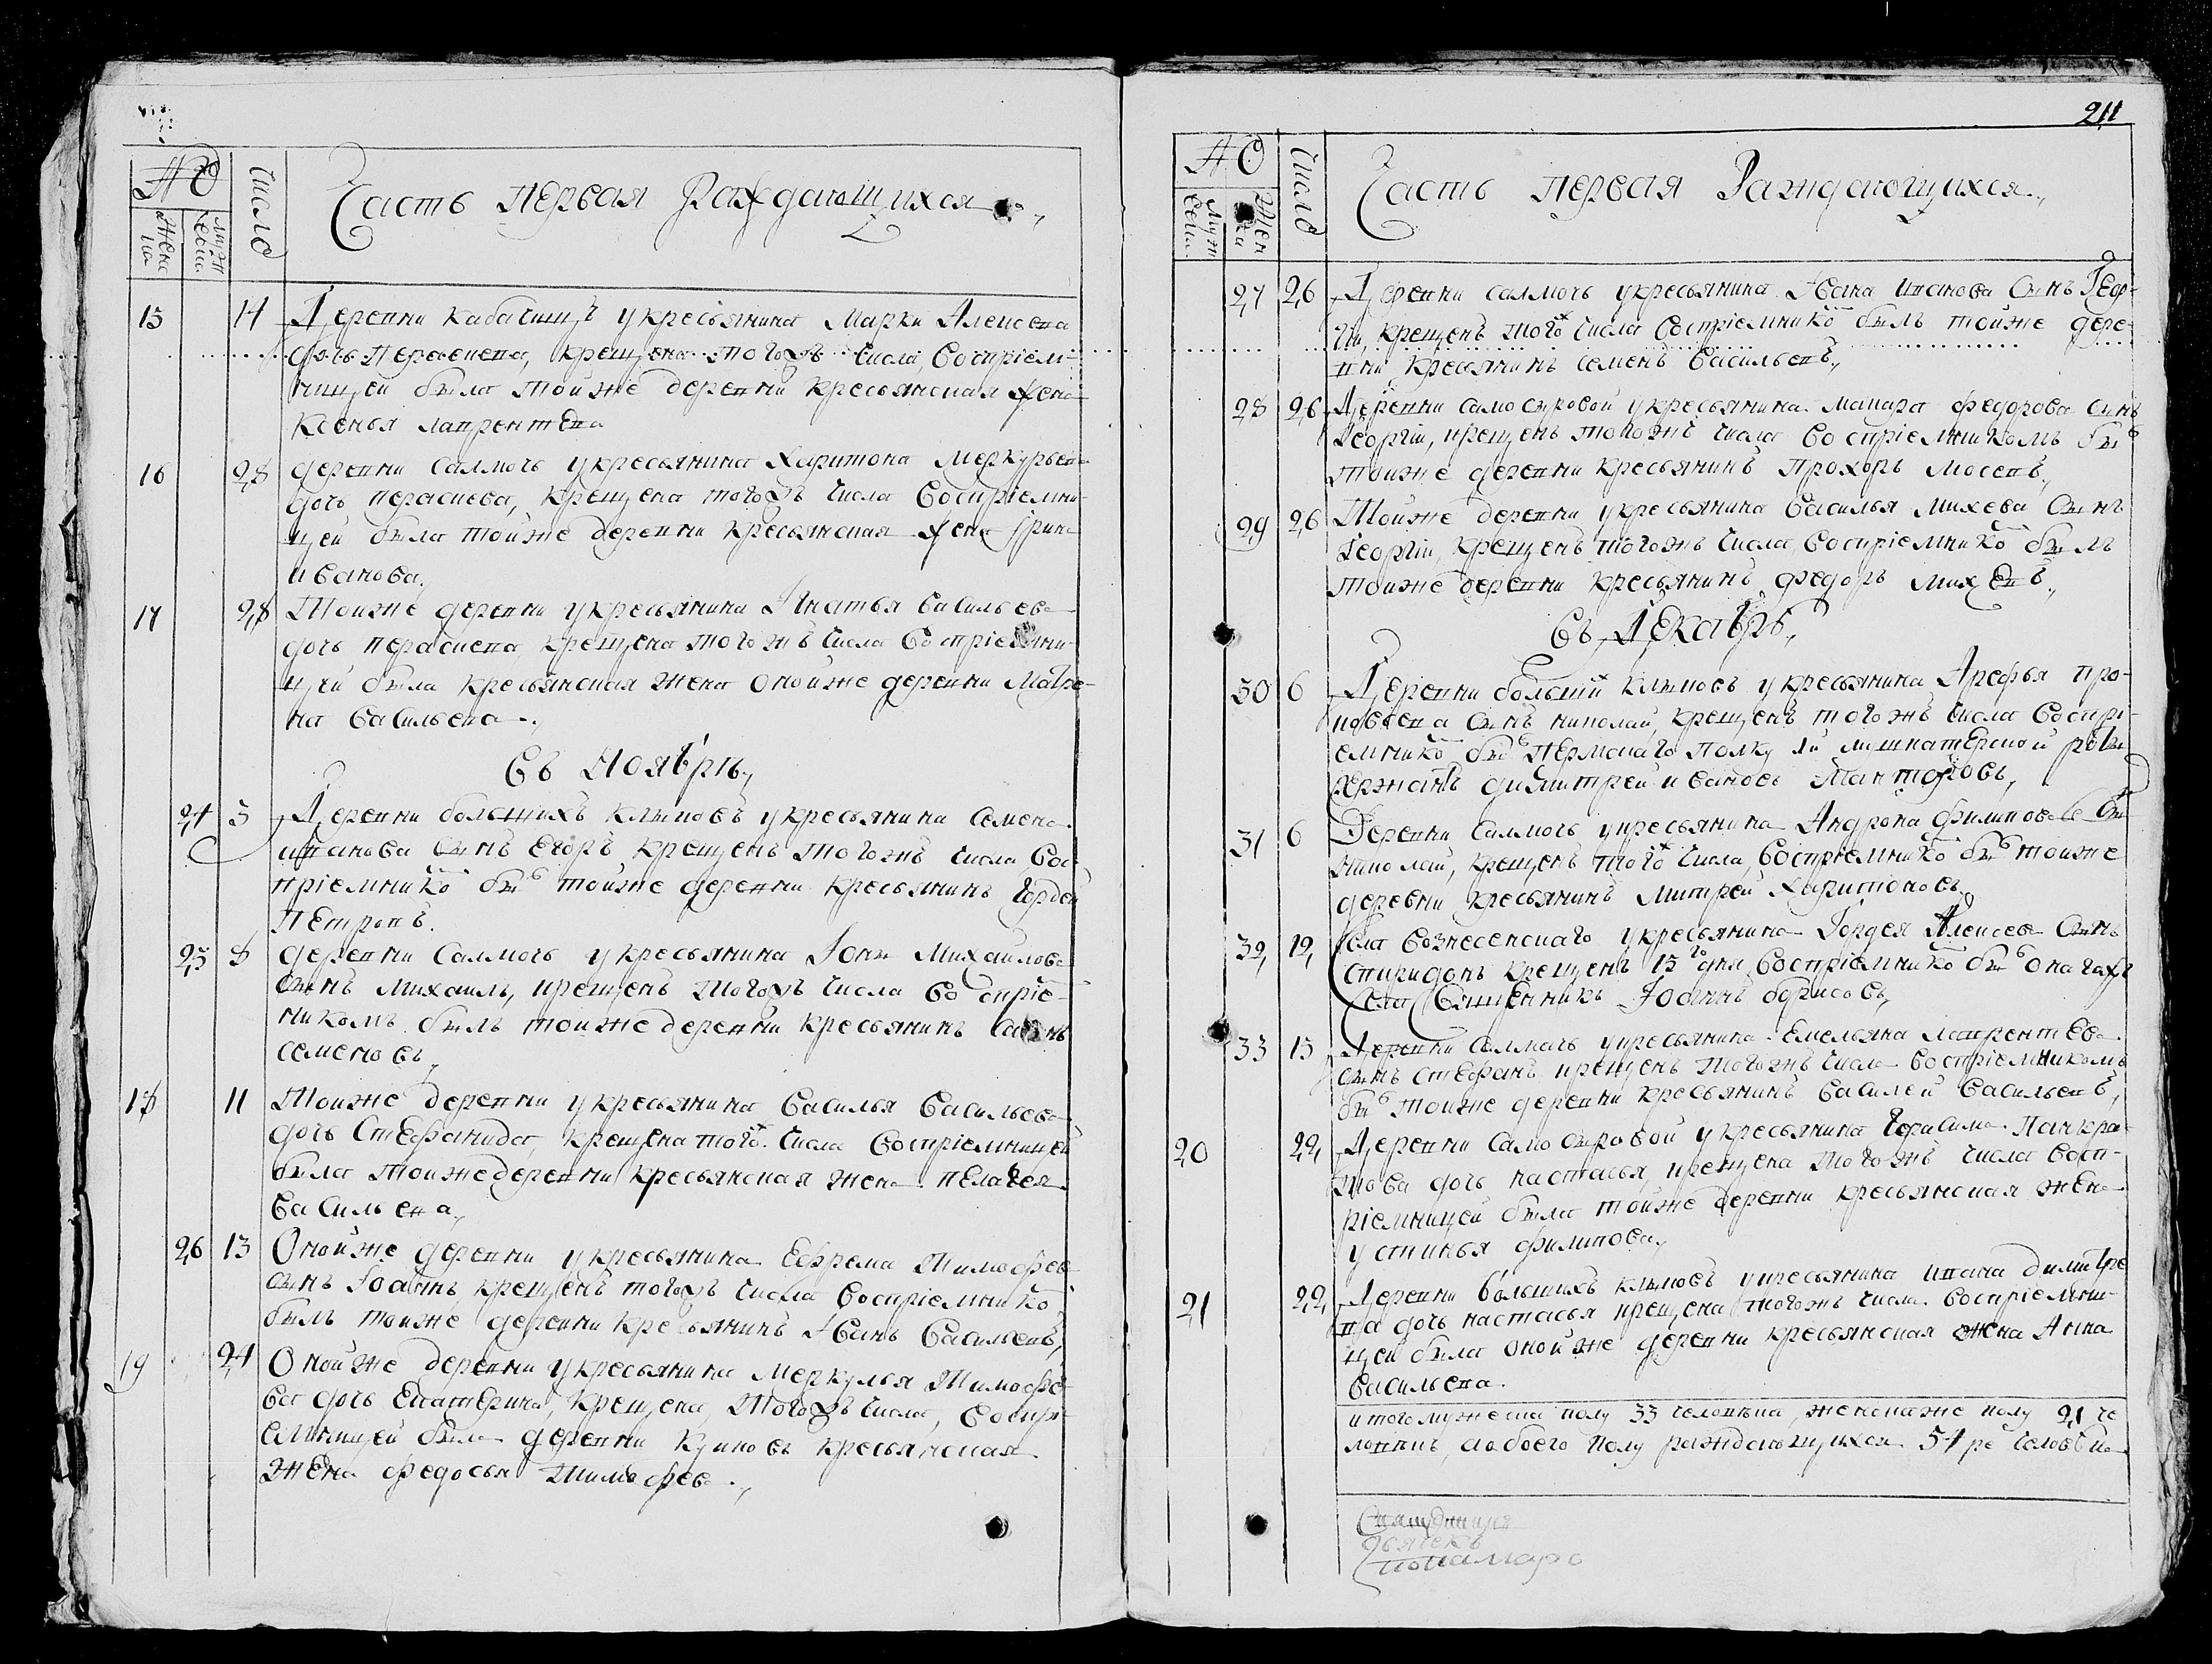 №
Число
Женс
ка
Муж
ска
Часть первая Раждающихся.,
15 14 Деревни Кабачищъ у крестьянина Марки Алексеева
дочь Парасковева, крещена тогожъ числа, воспрiем-
ницей была тойже деревни крестьянская жена
Ксенья лаврентева
16 28 деревни саллочь у крестьянина Харитона Меркурьева
дочь параскева, крещена тогожъ числа воспрiемни-
цей была тойже деревни крестьянская жена Ірина
иванова.,
17 28 Тойже деревни у крестьянина Игнатья васильева
дочь параскева, крещена тогожъ числа воспрiемни-
цей была крестьянская жена онойже деревни Матре-
на васильева.,
Въ Ноябрѣ,
24 3 Деревни большихъ клыковъ у крестьянина Семена
иванова сынъ Егоръ крещенъ тогожъ числа вос-
прiемнико бы тойже деревни крестьянинъ Гордей
Петровъ.
25 8 деревни саллочь у крестьянина Іоны Михаилова
сынъ михаилъ, крещенъ тогожъ числа во спрiе-
никомъ былъ тойже деревни крестьянинъ
семеновъ,
18 11 Тойже деревни у крестьянина василья васильева
дочь Стефанида, крещена того числа воспрiемницей
была тойже деревни крестьянская жена пелагея
васильева.,
26 13 Онойже деревни у крестьянина Ефрема Тимофеева
сынъ Іоаннъ, крещенъ тогожъ числа воспрiемнико
былъ тойже деревни крестьянинъ Иванъ васильевъ,
19 24 Онойже деревни у крестьянина меркулья Тимофе-
ва дочь Екатерина, крещена тогожъ числа, воспрi-
емницей была деревни крестьянская
жена федосья Тимофеева.,
211
№
Число
Муж
ска
Жен
ка
Часть первая Раждающихся.,
27 26 Деревни саллочь у крестьянина Ивана иванова сынъ Геор-
гiи, крещенъ того числа воспрiемнико былъ тойже дере-
вни крестьянинъ семенъ васильевъ.,
28 26 Деревни самосыровой у крестьянина макара федорова сынъ
Георгiи, крещенъ тогожъ числа воспрiемникомъ бы
тойже деревни крестьянинъ прохоръ мосевъ.,
29 26 Тойже деревни у крестьянина василья михева сынъ
Георгiи, крещенъ тогожъ числа, воспрiемнико былъ
тойже деревни крестьянинъ федоръ михевъ.,
Въ Декабрѣ,
30 6 Деревни больши клыковъ у крестьянина Арефья про-
ковева сынъ николаи, крещенъ тогожъ числа воспрi-
емнико бы пермскаго полку роты
сержантъ димитреи ивановъ Мантуровъ,
31 6 Деревни саллочь у крестьянина Андрона филипова сы
николаи, крещенъ того числа, воспрiемнико бы тойже
деревни крестьянинъ митреи Харитоновъ.,
32 12 Села вознесенскаго у крестьянина Гордея Алексеева сынъ
спиридонъ крещенъ 13го дня воспрiемнико бы онагожъ
села священникъ Іоаннъ борисовъ,
33 15 Деревни саллочь у крестьянина Емельяна лаврентева
сынъ стефанъ крещенъ тогожъ числа воспрiемникомъ
бы тойже деревни крестьянинъ василеи васильевъ,
20 22 Деревни самосыровой у крестьянина Герасима Панкра-
това дочь настасья, крещена тогожъ числа восп-
рiемницей была тойже деревни крестьянская жена
устинья филипова,
21 22 Деревни большихъ клыковъ у крестьянина ивана димитре
ва дочь настасья крещена тогожъ числа воспрiемни-
цей была онойже деревни крестьянская жена Анна
васильева.
итого мужеска полу 33 человека, женска же полу 21 че
ловекъ, а обоего полу раждающихся 54ре человека
Священникъ
дьячекъ
пономарь